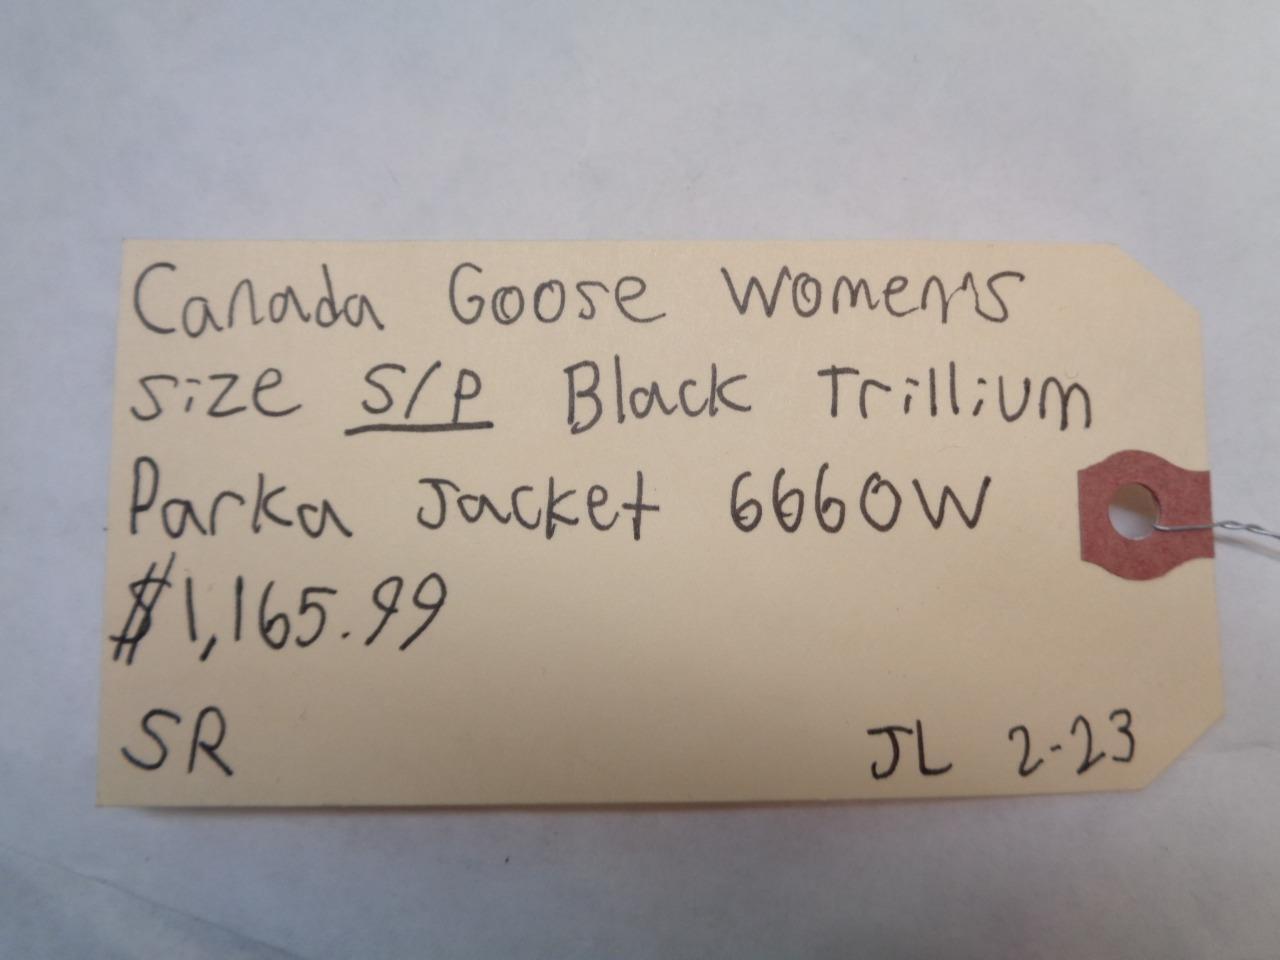 Canada Goose Women's
size S/P Black Trillium
Parka Jacket 6660W
$1,165.99
SR JL 2-23